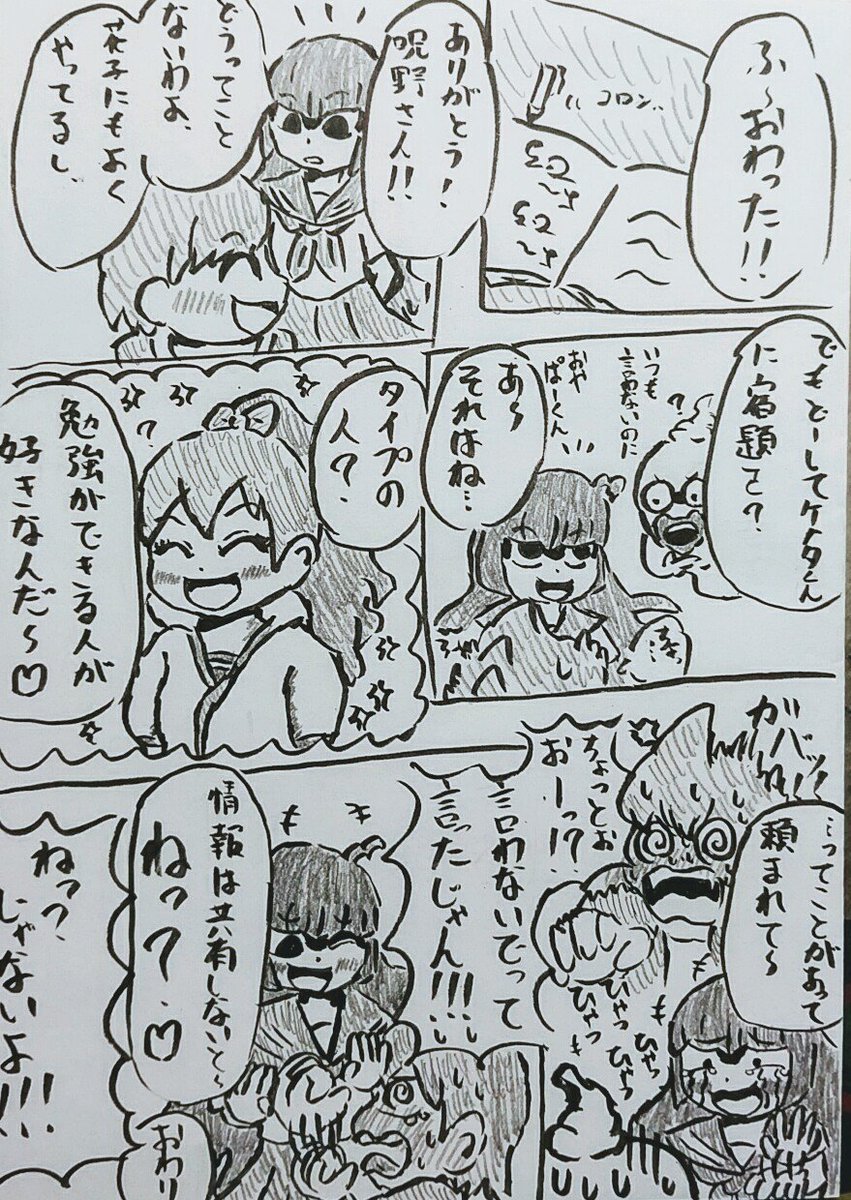 ふ〜おわった!!
コロン..
ありがとう!
呪野さん!!
どうってこと
ないわよ、
花子にもよく
やってるし、
でもどーしてケータくん
に宿題を?
いつも
言わないのに
?
おや
ぱーくん
あ〜
それはね…
タイプの
人?
勉強ができる人が
好きなんだ〜♡
ガバッ!!
…ってことがあって
頼まれて〜
ちょっとぉ
おーっ!?
言わないでって
言ったじゃん!!!
ひゃっ
ひゃっ
ひゃっ
ひゃっ
情報は共有しないと〜
ねっ?♡
ねっ?
じゃないよ!!!
おわり